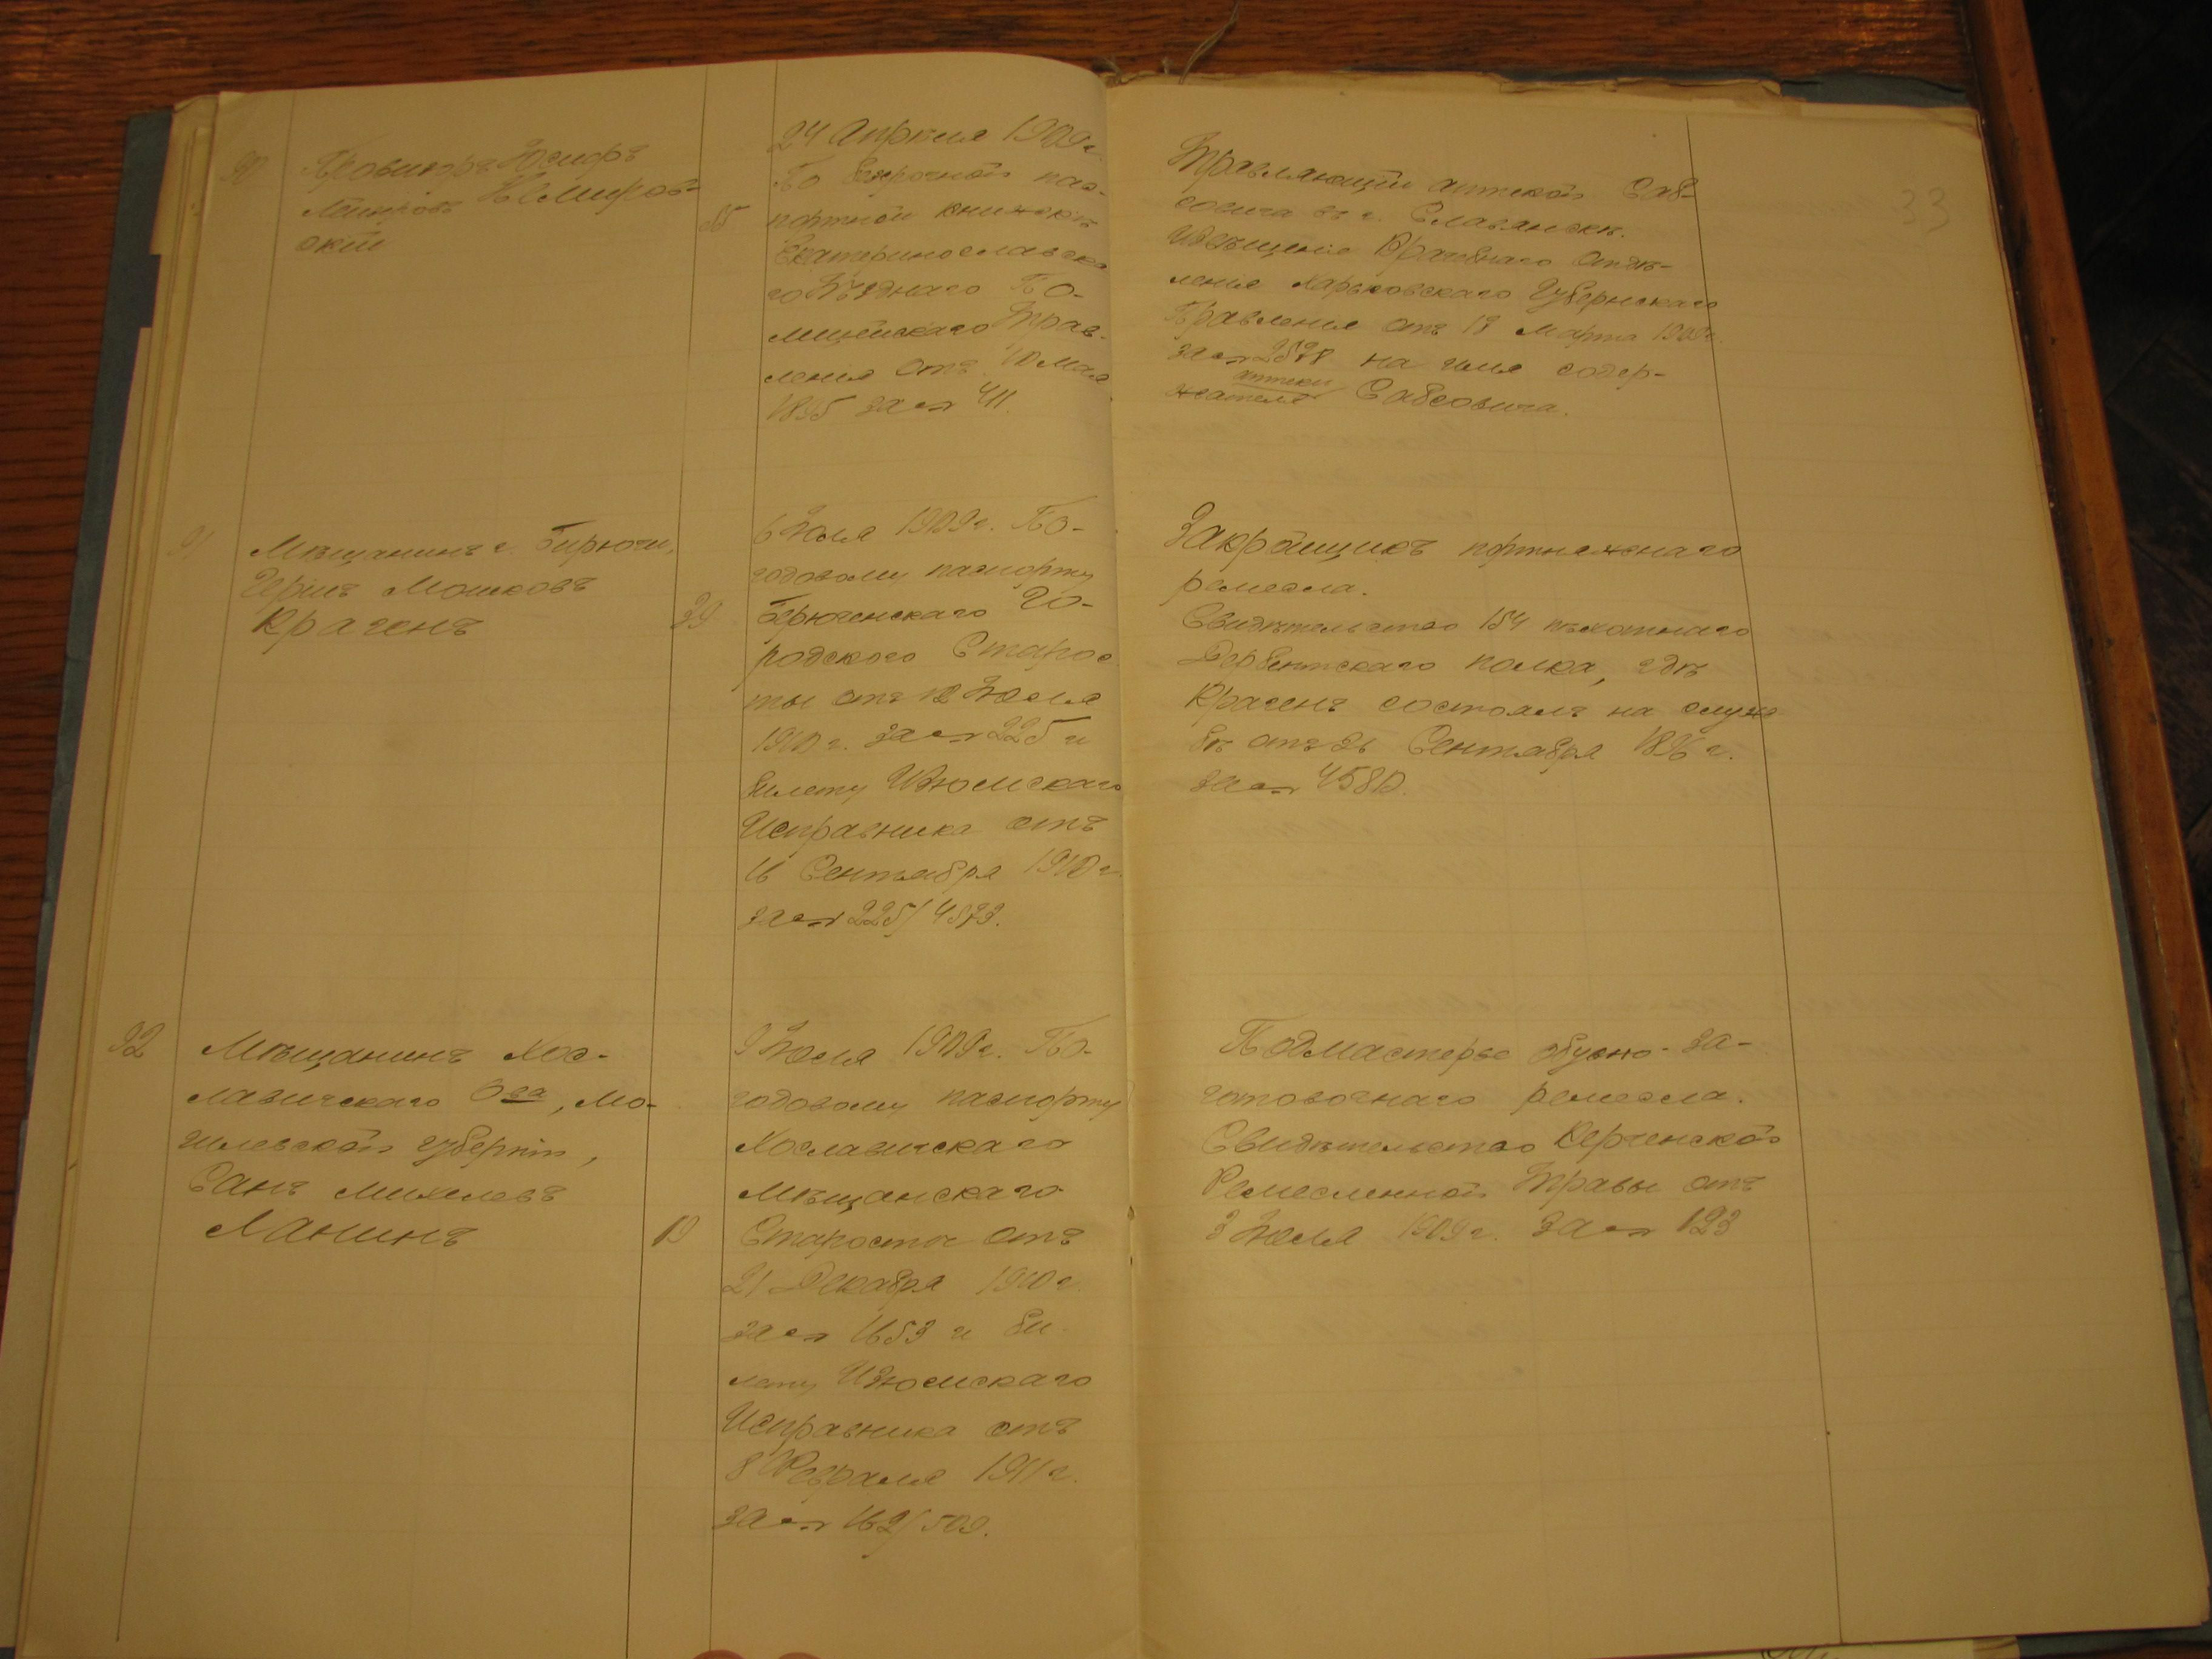 33
90
Провизоръ Іосифъ
Лейзеровъ Немиров-
скій
55
24 Апрѣля 1909 г.
По безсрочной пас-
портной книжкѣ
Екатеринославска
го Уѣзднаго По-
лицейскаго Управ-
ленія отъ 10 Мая
1895 за № 411.
Управляющій аптекой Саб-
совича въ г. Славянскѣ.
Извѣщеніе Врачебнаго Отдѣ-
ленія Харьковскаго Губернскаго
Правленія отъ 19 Марта 1909 г.
за № 2578 на имя содер-
жателя аптеки Сабсовича.
91
Мѣщанинъ г. Бирючи,
Герцъ Мошковъ
Крагенъ
39
6 Іюля 1909 г. По-
годовому паспорту
Бирюченскаго Го-
родского Старос
ты отъ 12 Іюля
1910 г. за № 225 и
билету Изюмскаго
Исправника отъ
16 Сентября 1910 г.
за № 225/4573.
Закройщикъ портняжнаго
ремесла.
Свидѣтельство 154 пѣхотнаго
Дербентскаго полка, гдѣ
Крагенъ состоялъ на служ
бѣ отъ 26 Сентября 1896 г.
за № 4580.
92
Мѣщанинъ Хос-
лавичскаго О-ва, Мо-
гилевской губерніи,
Санъ Михелевъ
Ланинъ
19
9 Іюля 1909 г. По-
годовому паспорту
Хославичскаго
Мѣщанскаго
Старосты отъ
21 Декабря 1910 г.
за № 1653 и би-
лету Изюмскаго
Исправника отъ
8 Февраля 1911 г.
за № 162/509.
Подмастерье обувно-за-
готовочнаго ремесла.
Свидѣтельство Керченской
Ремесленной Управы отъ
3 Іюля 1909 г. за № 123